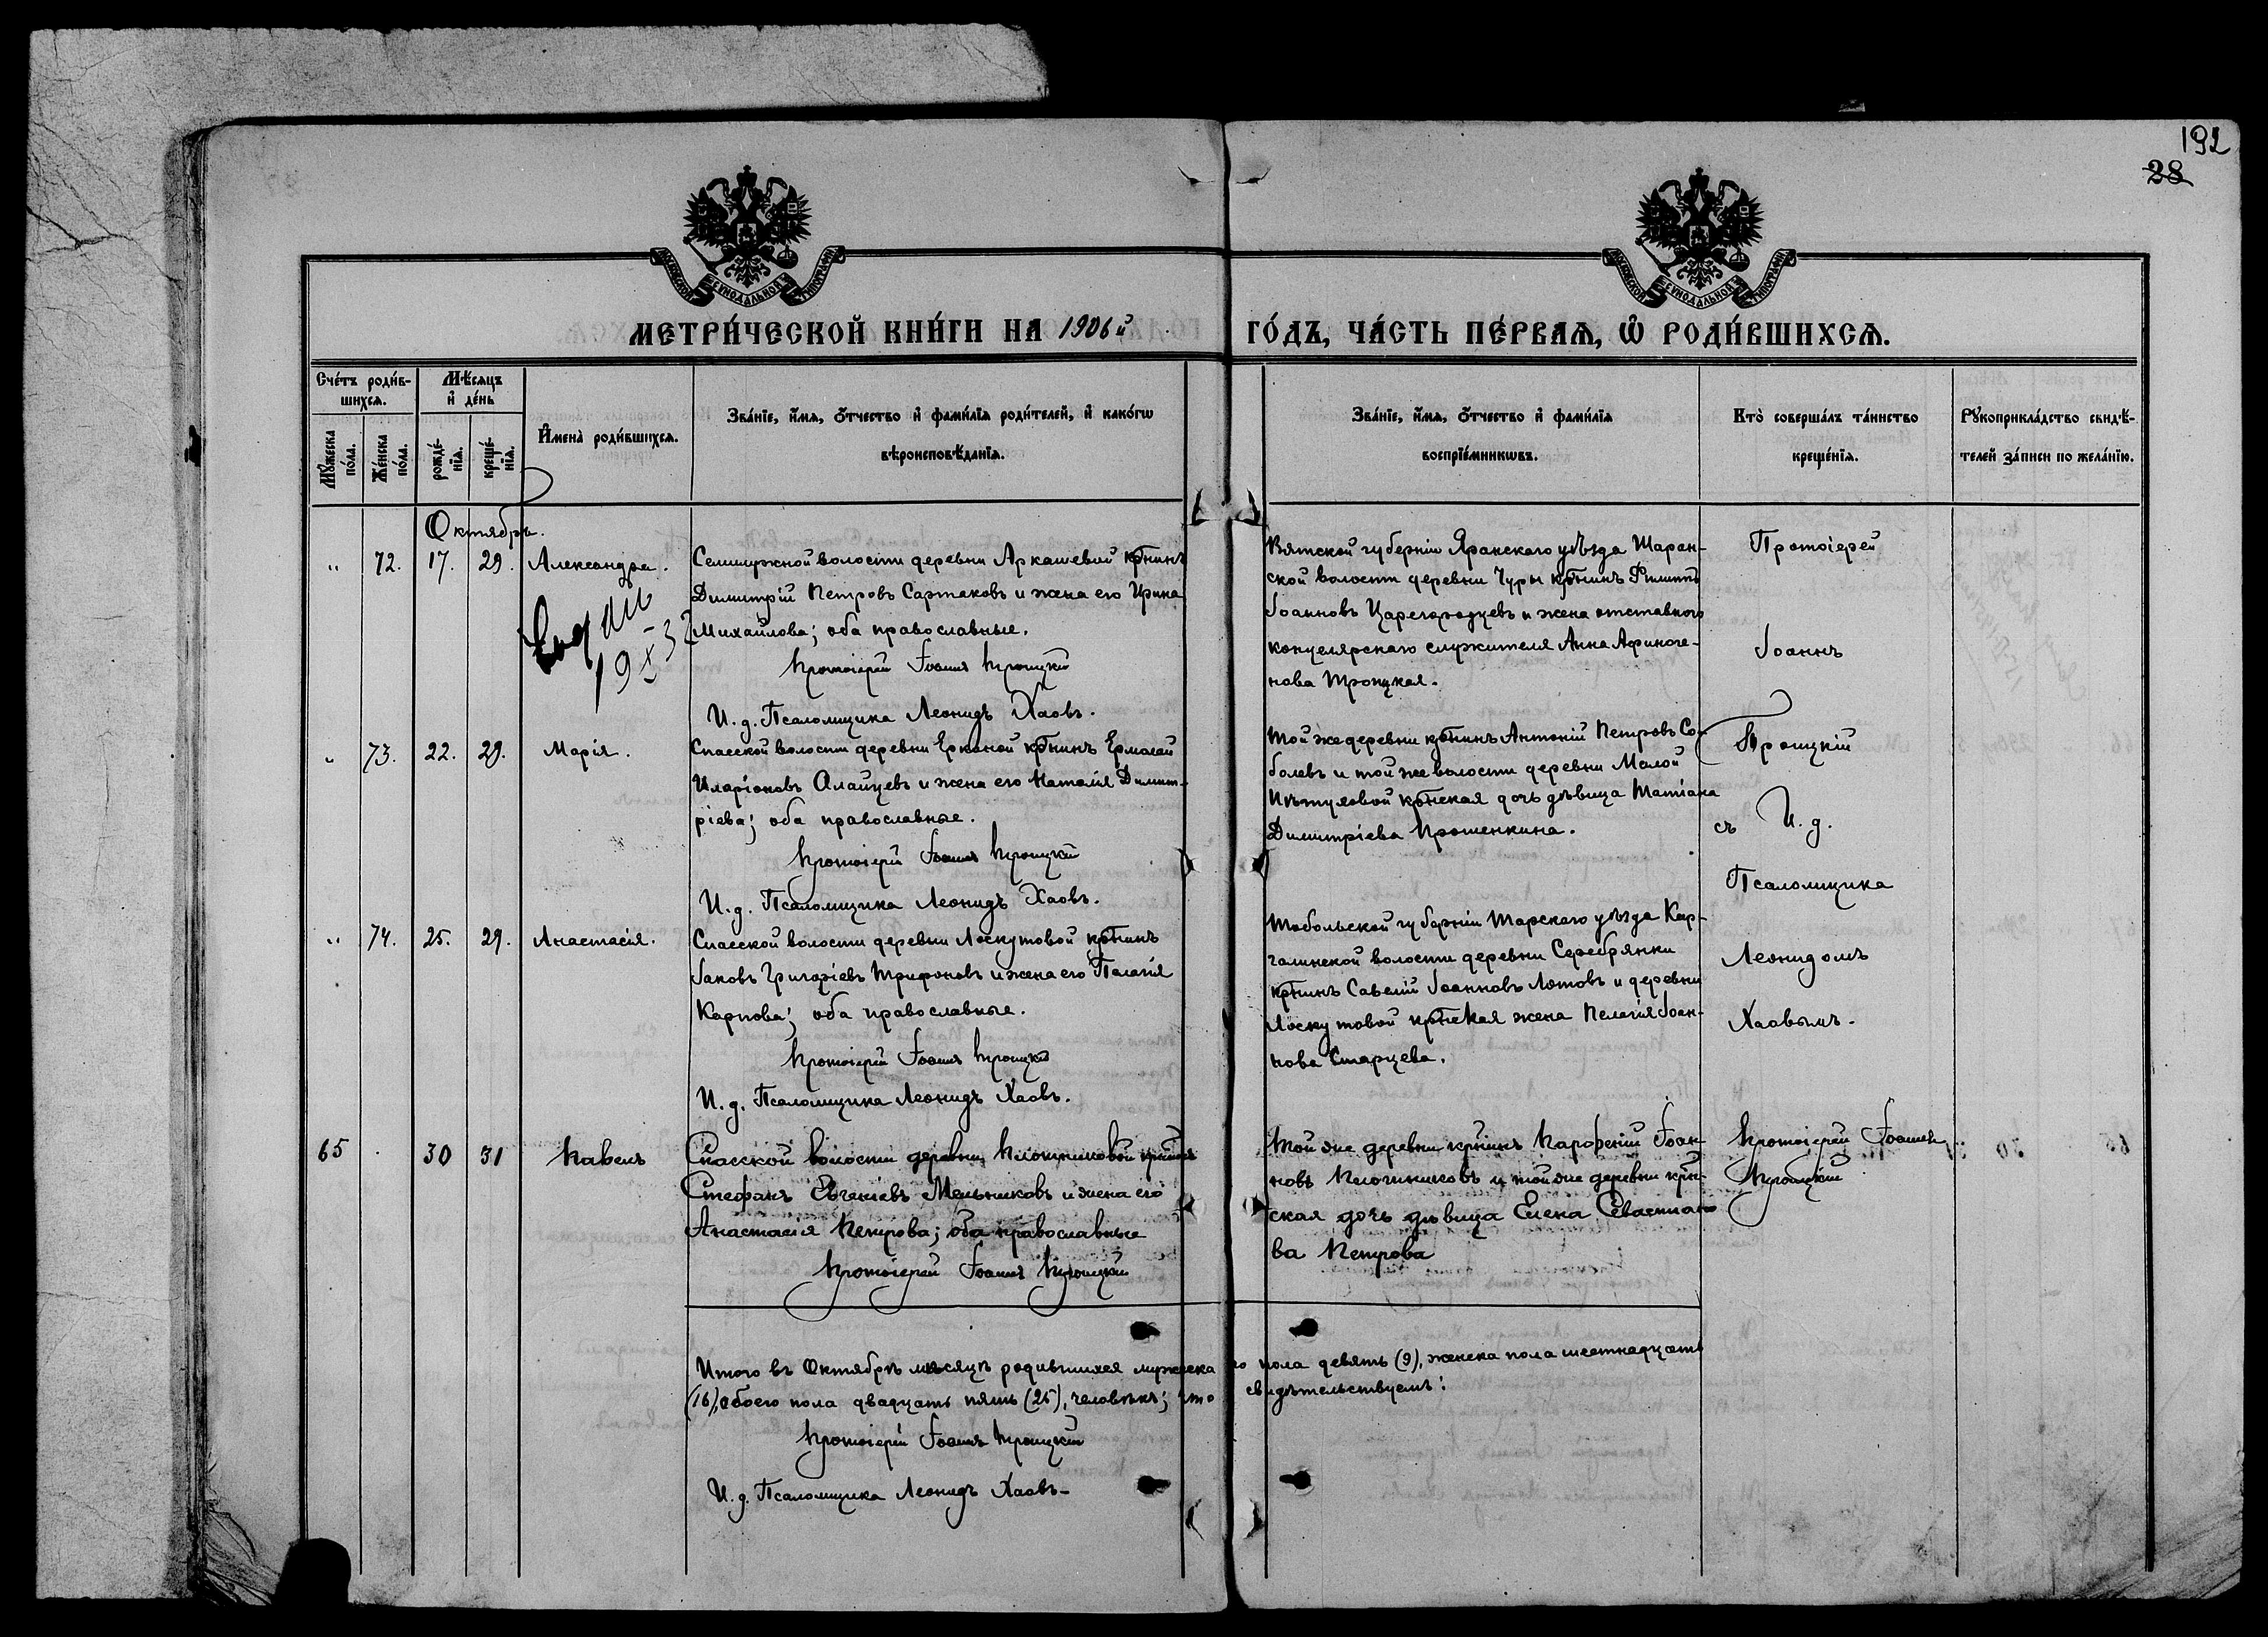 192
28
МОСКОВСКОЙ СѴНОДАЛЬНОЙ ТИПОГРАФІИ
МОСКОВСКОЙ СѴНОДАЛЬНОЙ ТИПОГРАФІИ
МЕТРИ́ЧЕСКОЙ КНИ́ГИ НА 1906й ГО́ДЪ, ЧА́СТЬ ПЕ́РВАѦ, Ѡ҆ РОДИ́ВШИХСѦ.
Сче́тъ роди́в-
шихсѧ.
Мѣ́сѧцъ
и҆ де́нь
Мꙋ́жеска
по́ла.
Же́нска
по́ла.
рожде́-
нїѧ.
креще́-
нїѧ.
И҆мена̀ роди́вшихсѧ.
Зва́нїе, и҆́мѧ, ѻ҆́тчество и҆ фами́лїѧ роди́телей, и҆ како́гѡ
вѣроисповѣ́данїѧ.
Зва́нїе, и҆́мѧ, ѻ҆́тчество и҆ фами́лїѧ
воспрїе́мникѡвъ.
Кто̀ соверша́лъ та́инство
креще́нїѧ.
Рꙋкоприкла́дство свидѣ́-
телей за́писи по жела́нїю.
Октябрь.
" 72. 17. 29. Александра.
Семиужной волости деревни Аркашевой кр̃нинъ
Димитрій Петровъ Сартаковъ и жена его Ирина
Михайлова; оба православные.
Протоіерей Іоаннъ Троицкій
И. д. Псаломщика Леонидъ Хаовъ.
Вятской губерніи Яранскаго уѣзда Шаран-
ской волости деревни Чуры кр̃нинъ Филиппъ
Іоанновъ Царегородцевъ и жена отставного
концелярскаго служителя Анна Афиноге-
нова Троицкая.
Протоіерей
Іоаннъ
Троицкій
съ И. д.
Псаломщика
Леонидомъ
Хаовымъ.
" 73. 22. 29. Марія.
Спасской волости деревни Еркиной кр̃нинъ Ермолай
Иларіоновъ Алайцевъ и жена его Наталія Димит-
ріева; оба православные.
Протоіерей Іоаннъ Троицкій
И. д. Псаломщика Леонидъ Хаовъ.
Той же деревни кр̃нинъ Антоній Петровъ Со-
болевъ и той же волости деревни Малой
кр̃нская дочь дѣвица Татіана
Димитріева Прошенкина.
" 74. 25. 29. Анастасія.
Спасской волости деревни Лоскутовой кр̃нинъ
Іаковъ Григоріевъ Трифоновъ и жена его Пелагія
Карпова; оба православные.
Протоіерей Іоаннъ Троицкій
И. д. Псаломщика Леонидъ Хаовъ.
Тобольской губерніи Тарскаго уѣзда Кар-
галинской волости деревни Серебрянки
кр̃нинъ Савелій Іоанновъ Лотовъ и деревни
Лоскутовой кр̃нская жена Пелагія Іоан-
нова Старцева.
65 . 30 31 Павелъ
Спасской волости деревни Плотниковой кр̃нинъ
Стефанъ Евгеніевъ Мельниковъ и жена его
Анастасія Петрова; оба православные
Протоіерей Іоаннъ Троицкій
Той же деревни кр̃нинъ Парфеній Іоан-
новъ Плотниковъ и той же деревни кр̃н-
ская дочь дѣвица Елена Севастіано
ва Петрова
Протоіерей Іоаннъ
Троицкій
Итого въ Октябрѣ мѣсяцѣ родившихся мужеска го пола девять (9), женска пола шестнадцать
(16), обоего пола двадцать пять (25), человѣкъ; что свидѣтельствуемъ:
Протоіерей Іоаннъ Троицкій
И. д. Псаломщика Леонидъ Хаовъ.